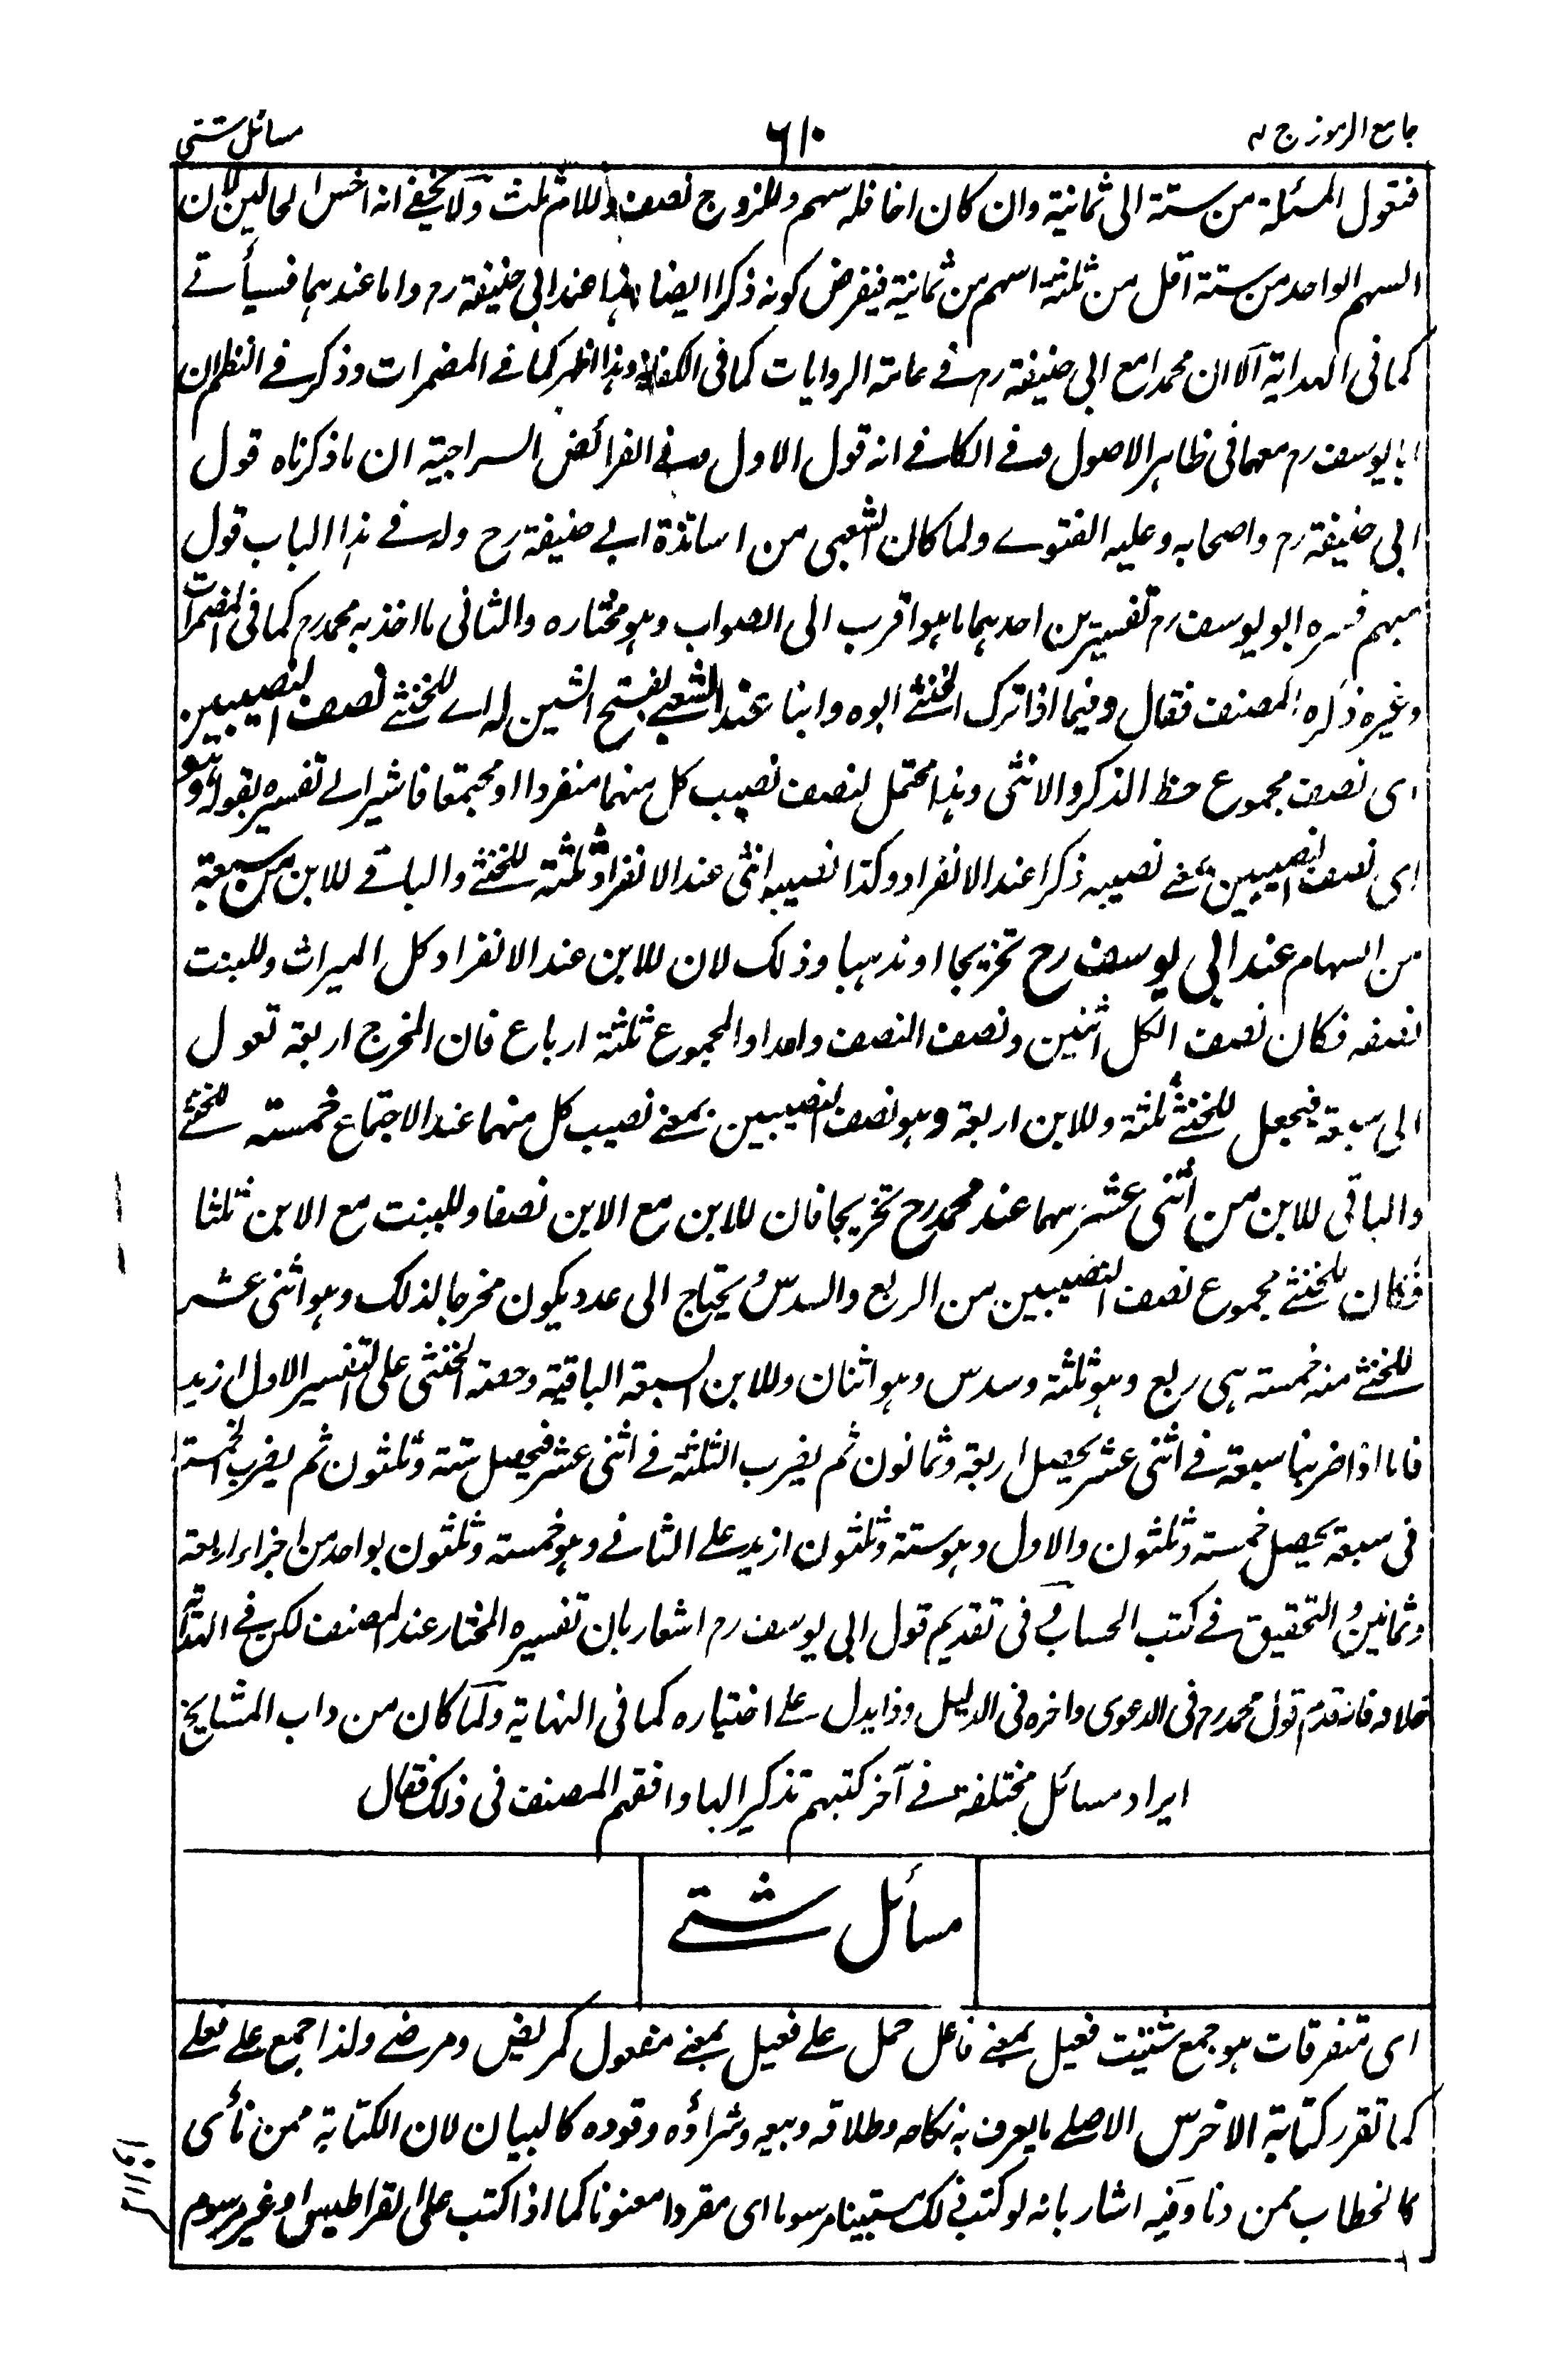 جامع الرموز ج ٢
٦١٠
مسائل شتى
فتعول المسئلة من ستة الى ثمانية وان كان اخا فله سهم وللزوج نصف وللام ثلث ولا يخفى انه اخس الحالين لان
السهم الواحد من ستة اقل من ثلثة اسهم من ثمانية فيفرض كونه ذكرا ايضا هذا عند ابى حنيفة رح واما عندهما فسيأتى
كما فى الهداية الا ان محمدا مع ابى حنيفة رح فى عامة الروايات كما فى الكفاية وهذا اظهر كما فى المضمرات وذكر فى النظم ان
ابا يوسف رح معهما فى ظاهر الاصول وفى الكافى انه قول الاول وفى الفرائض السراجية ان ما ذكرناه قول
ابى حنيفة رح واصحابه وعليه الفتوى ولما كان الشعبى من اساتذة ابى حنيفة رح وله فى هذا الباب قول
مبهم فسره ابو يوسف رح تفسيرين احدهما ما هو اقرب الى الصواب وهو مختاره والثانى ما اخذ به محمد رح كما فى المضمرات
وغيره ذكره المصنف فقال وفيما اذا ترك الخنثى ابوه وابنا عند الشعبى بفتح الشين له اى للخنثى نصف النصيبين
اى نصف مجموع حظ الذكر والانثى وهذا محتمل لنصف نصيب كل منهما منفردا او مجتمعا فاشير الى تفسيره بقوله وهو
اى نصف النصيبين يعنى نصيبه ذكرا عند الانفراد وكذا نصيبه انثى عند الانفراد ثلثة للخنثى والباقى للابن من سبعة
من السهام عند ابى يوسف رح تخريجا او مذهبا وذلك لان للابن عند الانفراد كل الميراث وللبنت
نصفه فكان نصف الكل اثنين ونصف النصف واحدا والمجموع ثلثة ارباع فان المخرج اربعة تعول
الى سبعة فيجعل للخنثى ثلثة وللابن اربعة وهو نصف النصيبين بمعنى نصيب كل منهما عند الاجتماع خمسة للخنثى
والباقى للابن من اثنى عشر سهما عند محمد رح تخريجا فان للابن مع الابن نصفا وللبنت مع الابن ثلثا
فكان للخنثى مجموع نصف النصيبين من الربع والسدس يحتاج الى عدد يكون مخرجا لذلك وهو اثنى عشر
للخنثى منه خمسة هى ربع وهو ثلثة وسدس وهو اثنان وللابن السبعة الباقية وحصة الخنثى على التفسير الاول ازيد
فانا اذا ضربنا سبعة فى اثنى عشر يحصل اربعة وثمانون ثم يضرب الثلثة فى اثنى عشر فيحصل ستة وثلثون ثم يضرب الخمسة
فى سبعة يحصل خمسة وثلثون والاول وهو ستة وثلثون ازيد على الثانى وهو خمسة وثلثون بواحد من اجزاء اربعة
وثمانين والتحقيق فى كتب الحساب وفى تقديم قول ابى يوسف رح اشعار بان تفسيره المختار عند المصنف لكن فى الهداية
خلافه فانه قدم قول محمد رح فى الدعوى واخره فى الدليل وذا يدل على اختياره كما فى النهاية ولما كان من داب المشايخ
ايراد مسائل مختلفة فى آخر كتبهم تذكيرا لها وافقهم المصنف فى ذلك فقال
مسائل شتى
اى متفرقات هو جمع شتيت فعيل بمعنى فاعل حمل على فعيل بمعنى مفعول كمريض ومرضى ولذا جمع على فعلى
كما تقرر كتابة الاخرس الاصلى ما يعرف به نكاحه وطلاقه وبيعه وشراؤه وقوده كالبيان لان الكتابة ممن نأى
كالخطاب ممن دنا وفيه اشار بانه لو كتب ذلك مستبينا مرسوما اى مقردا معنونا كما اذا كتب على القراطيس او غير مرسوم